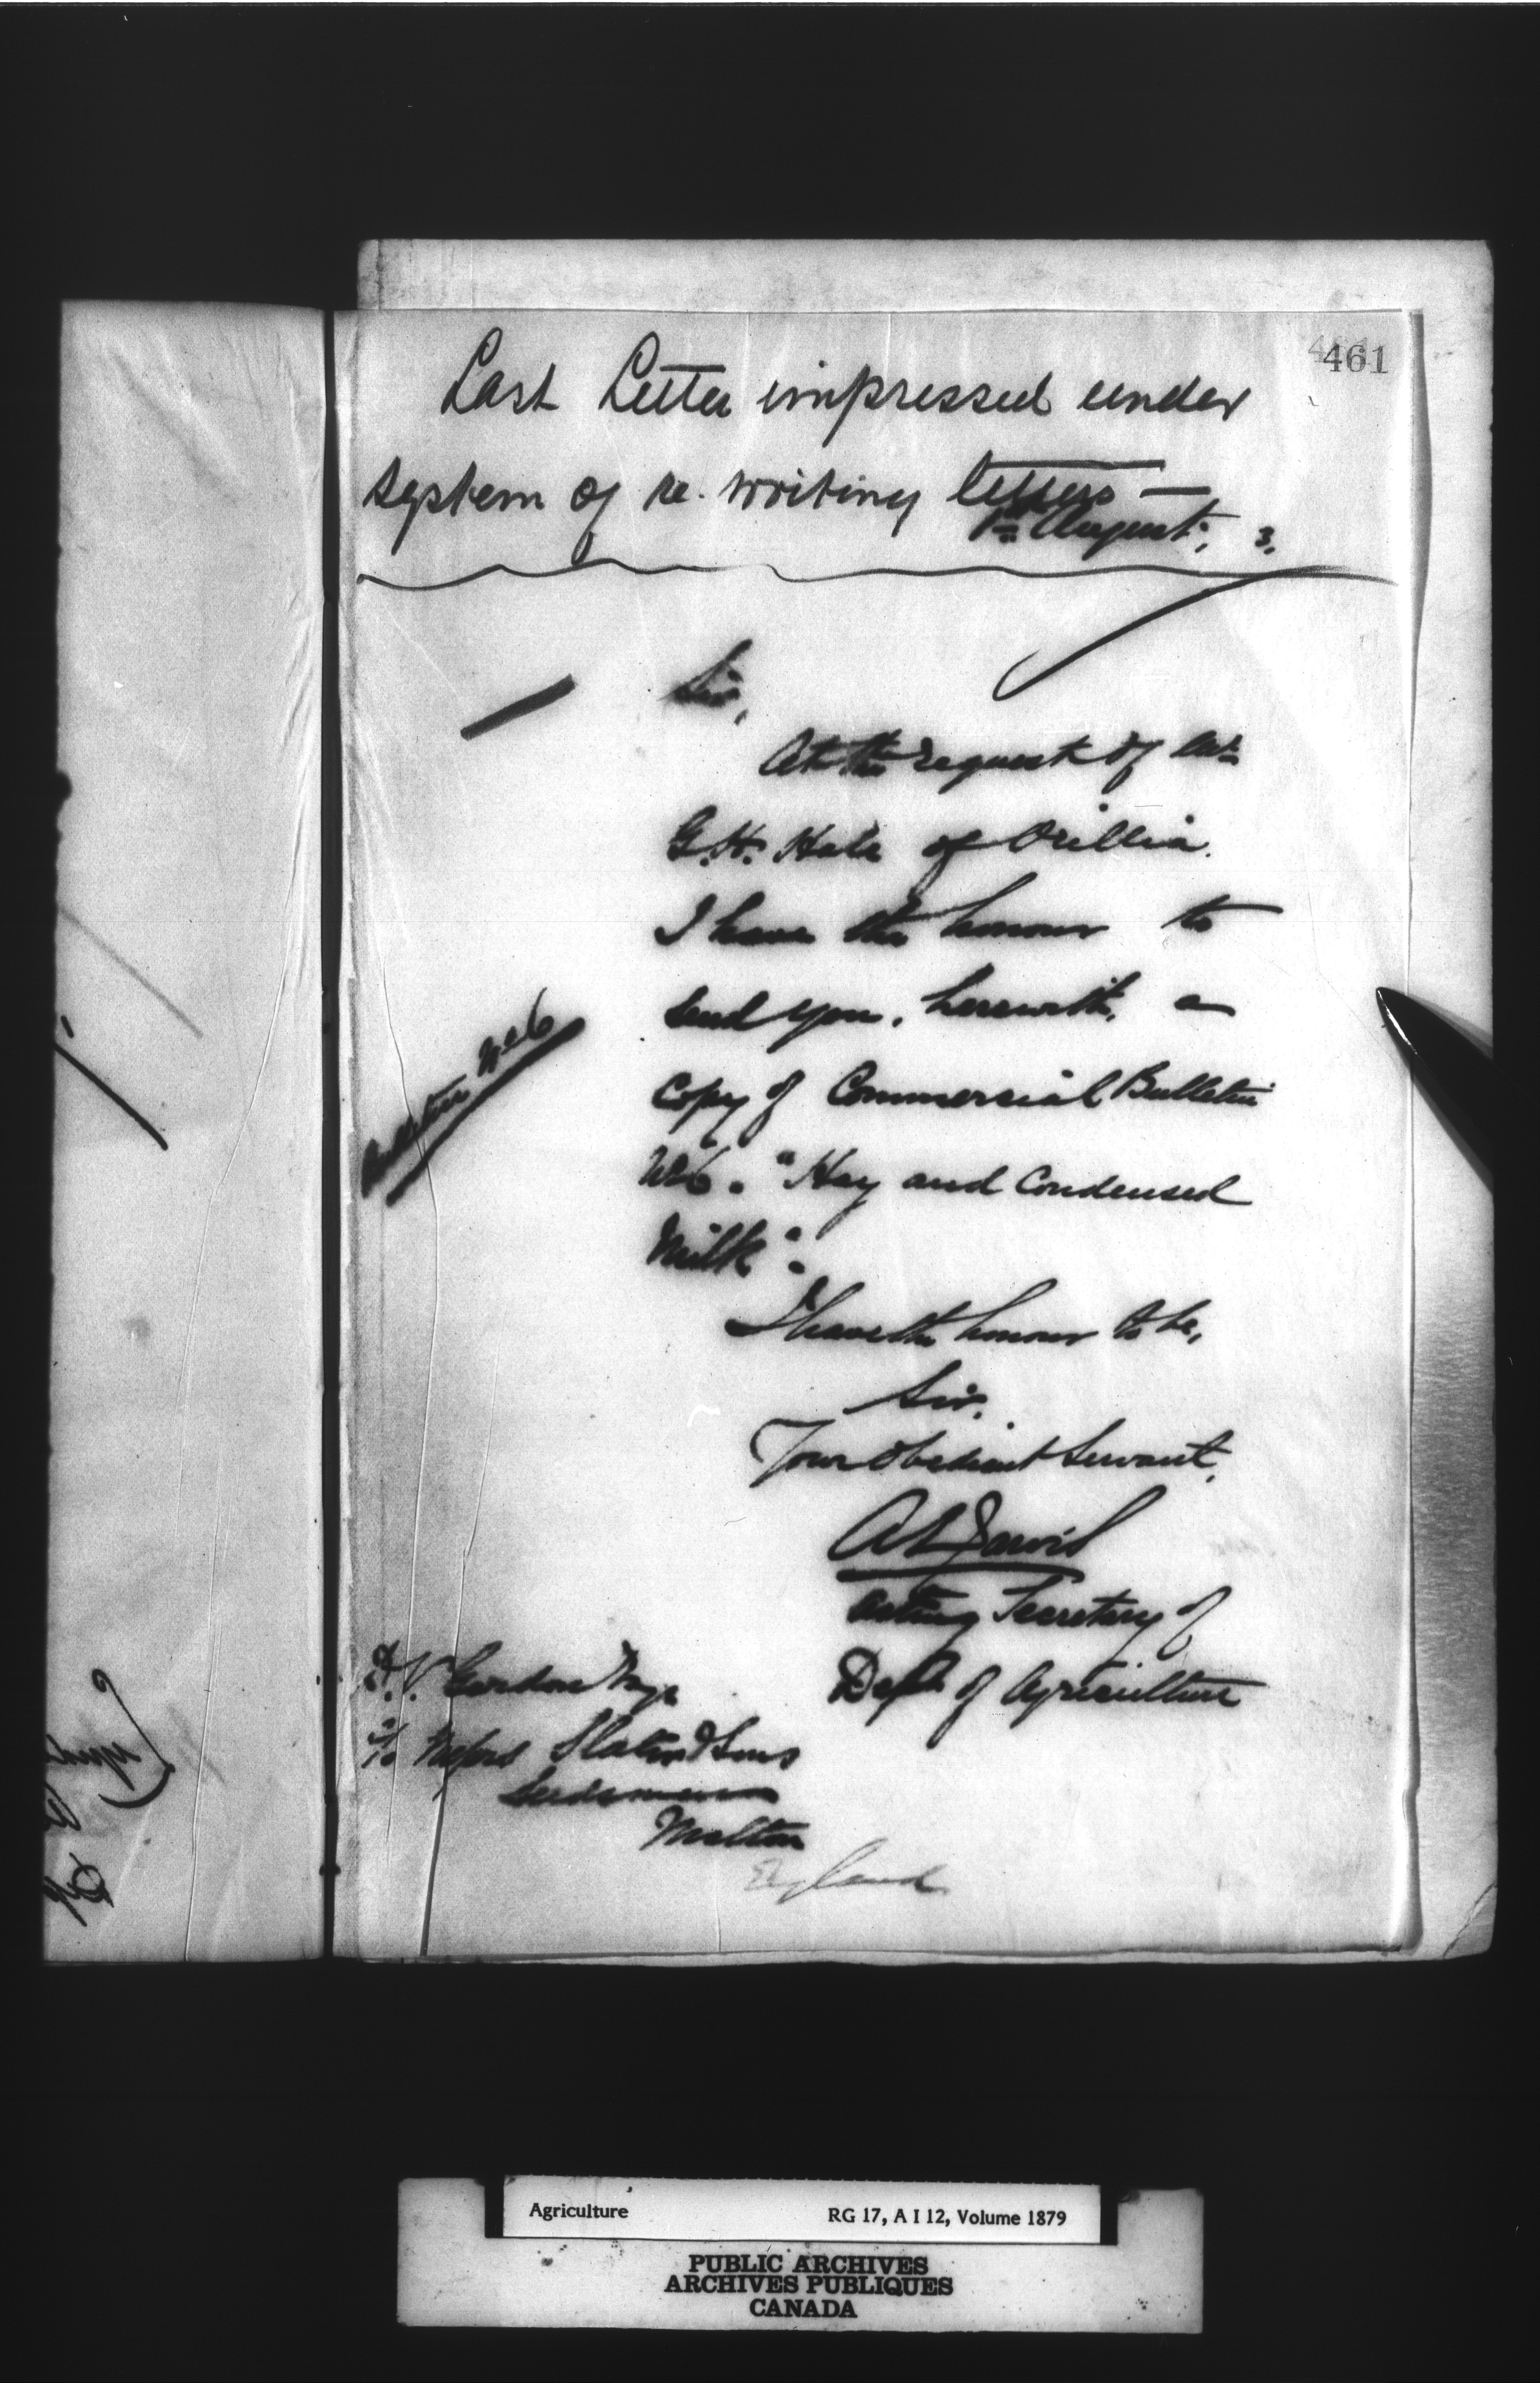 461
Last Letter impressed under
system of re-writing letters —
1st August, 3.
Sir,
At the request of Mr
G. H. Hale of Orillia.
I have the honour to
send you, herewith, a
Bulletin No 6
copy of Commercial Bulletin
No 6. "Hay and Condensed
Milk".
I have the honour to be,
Sir,
Your obedient Servant,
A L Jarvis
Acting Secretary of
Dept. of Agriculture
Gordon
c/o Messrs Slater & Sons
Seedsmen
Malton
England
Agriculture RG 17, A I 12, Volume 1879
PUBLIC ARCHIVES
ARCHIVES PUBLIQUES
CANADA